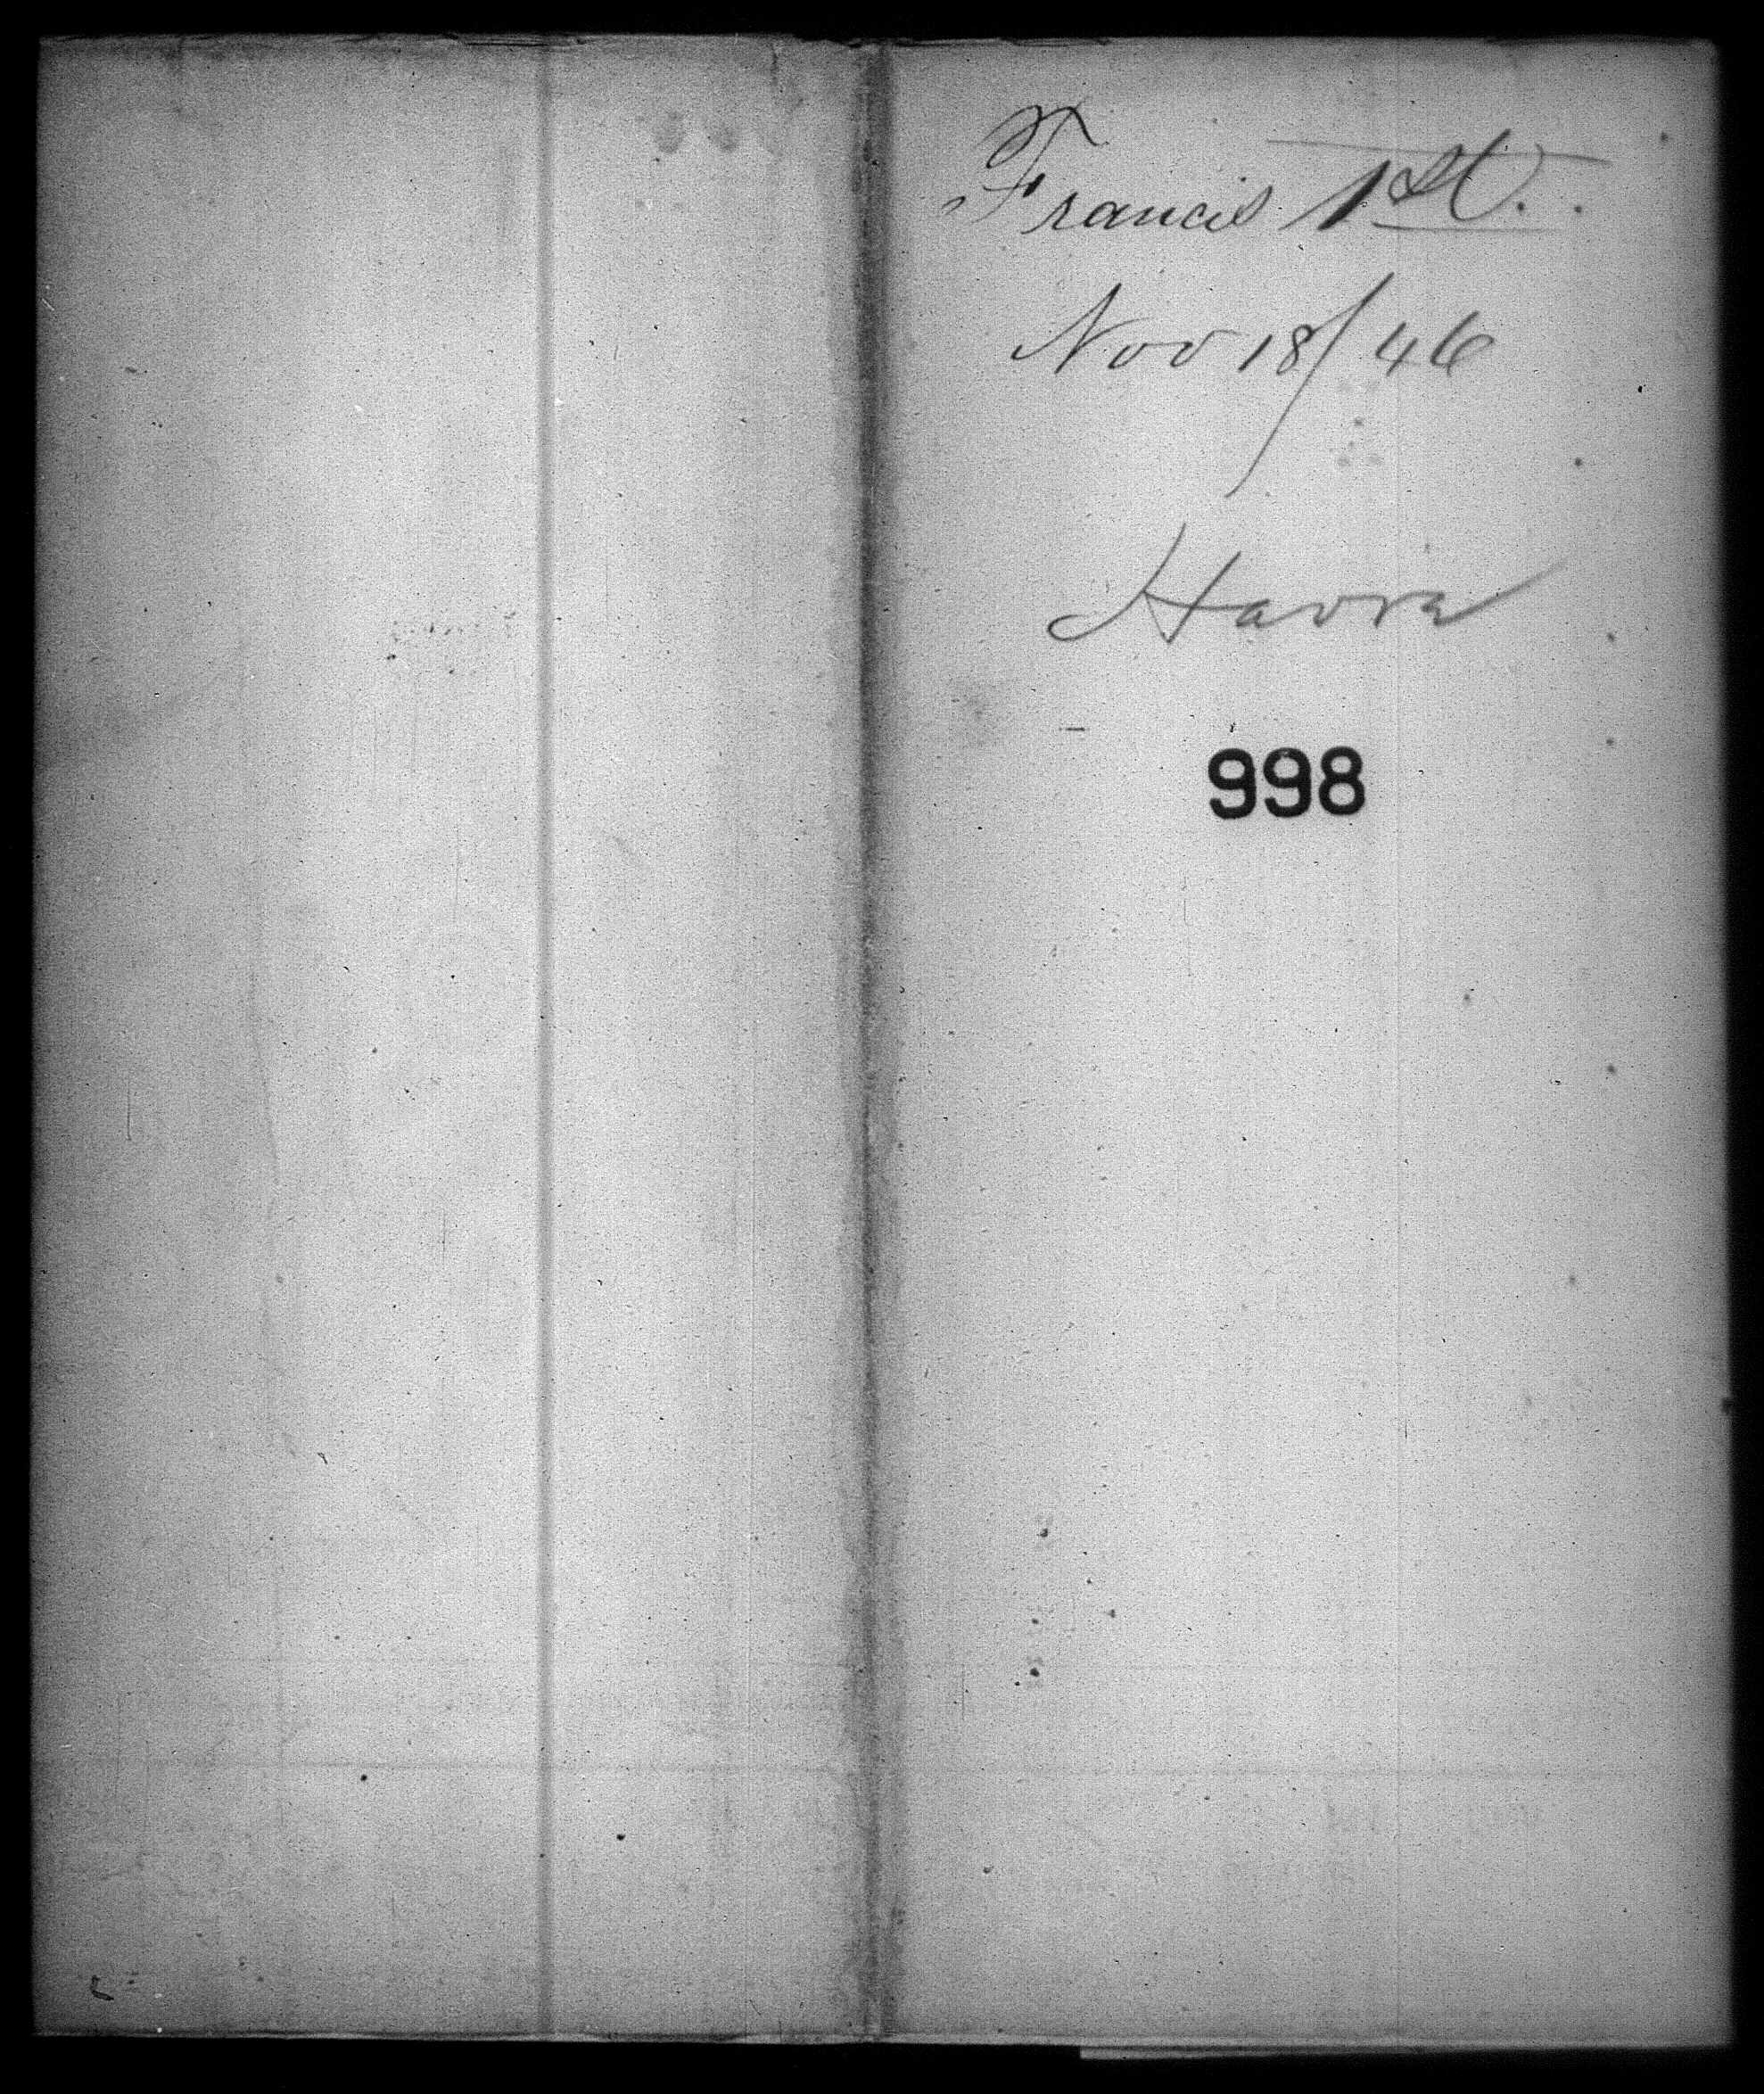 Francis 1st.
Nov 18/46
Havre
998